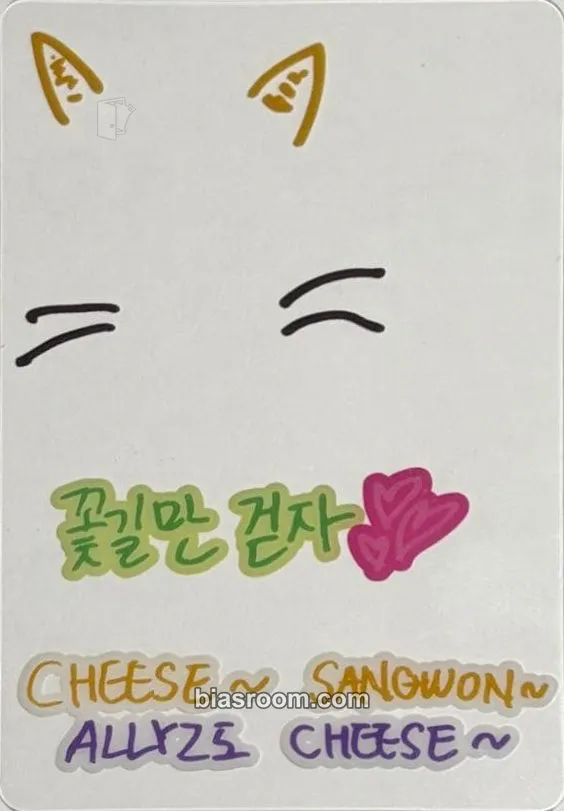 꽃길만 걷자
CHEESE~ SANGWON~
biasroom.com
ALLYZ도 CHEESE~